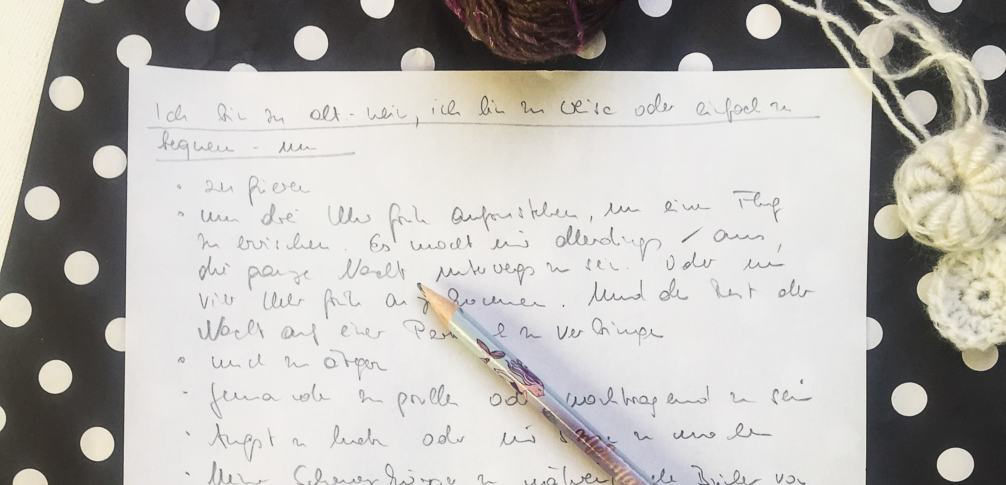 Ich bin zu alt - nein, ich bin zu weise oder einfach zu
bequem - um
• zu frieren
• um drei Uhr früh aufzustehen, um einen Flug
zu erwischen. Es macht mir allerdings / aus,
die ganze Nacht unterwegs zu sein. Oder um
vier Uhr früh anzukommen. Und den Rest der
Nacht auf einer zu verbringen
• mich zu ärgern
• jemandem zu grollen oder nachtragend zu sein
• Angst zu haben oder mir zu machen
• Meine zu nähren, die Bilder von